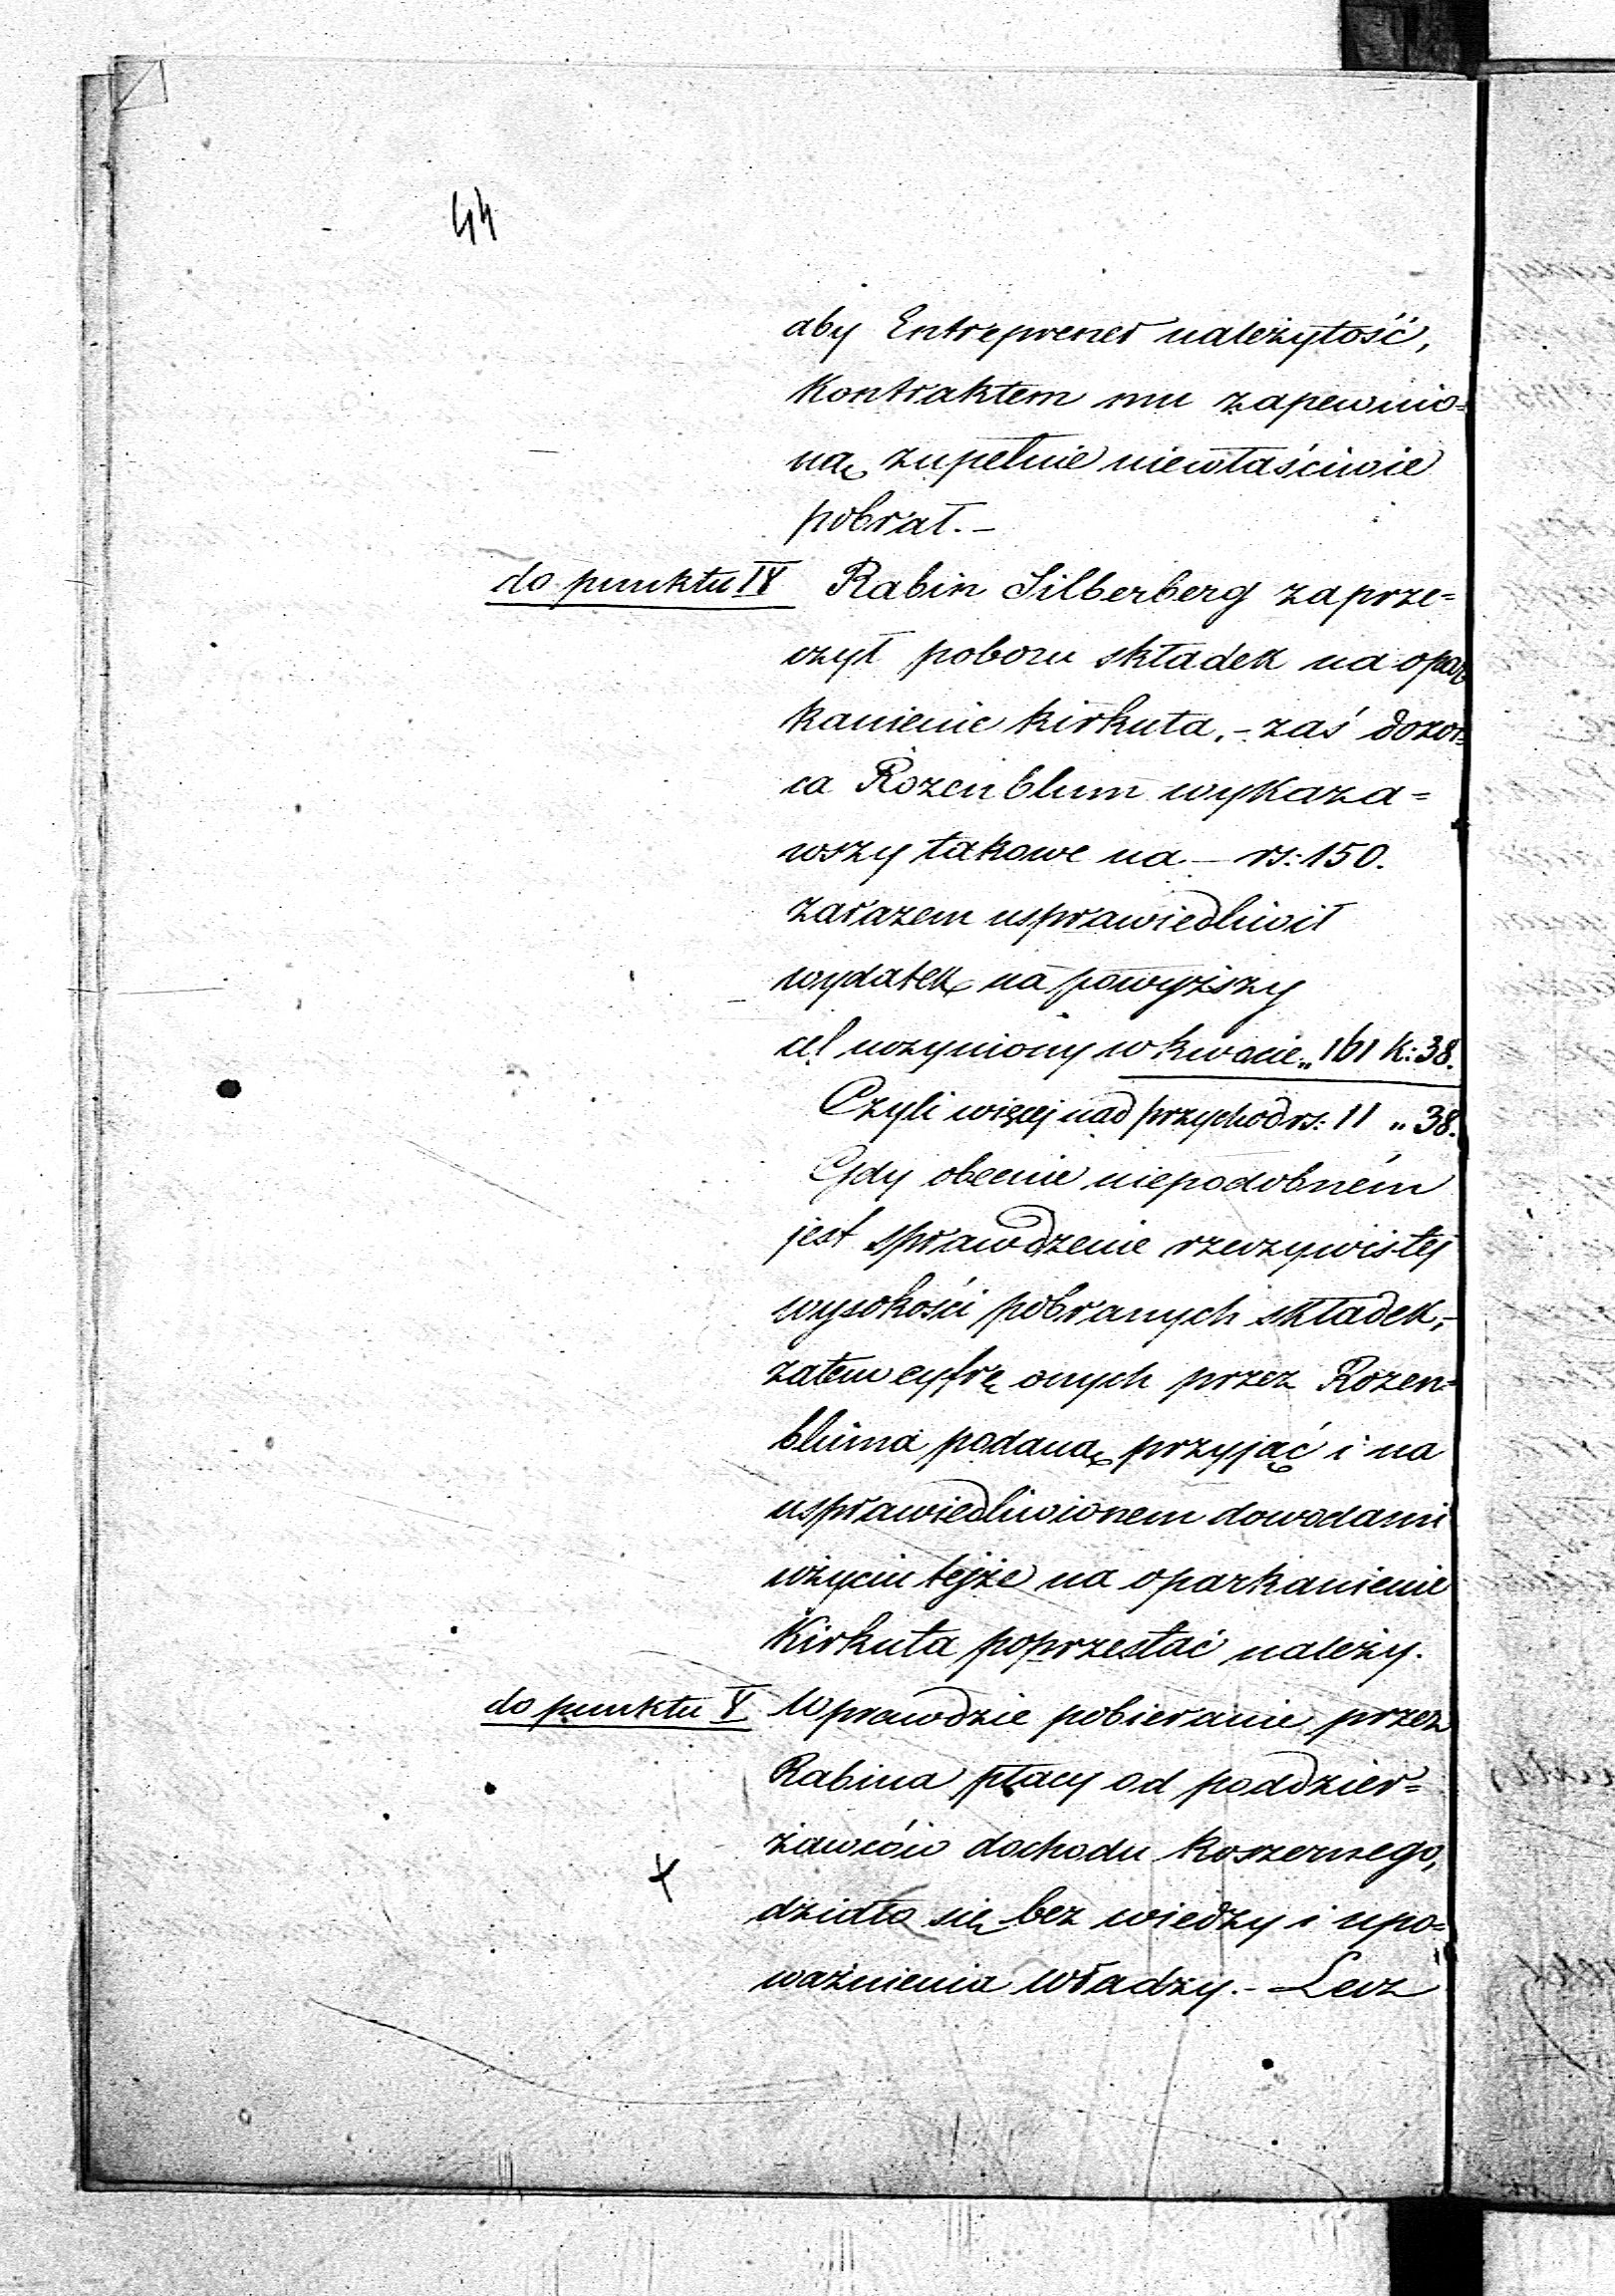 44
aby Entreprener należytość,
Kontraktem mu zapewnio=
ną zupełnie niewłaściwie
pobrał.—
do punktu IV Rabin Silberberg zaprze=
czył poboru składek na opar
kanienie kirkuta,- zaś dozor=
ca Rozenblum wykaza=
wszy takowe na — rs: 150.
zarazem usprawiedliwił
wydatek na powyższy
cel uczyniony w kwocie „ 161 k: 38.
Czyli więcej nad przychod rs: 11 „ 38.
Gdy obecnie niepodobném
jest sprawdzenie rzeczywistej
wysokości pobranych składek,-
zatem cyfrę onych przez Rozen=
bluma podaną przyjąć i na
usprawiedliwionem dowodami
użyciu tejże na oparkanienie
Kirkuta poprzestać należy.
do punktu V Wprawdzie pobieranie przez
Rabina płacy od poddzier=
żawców dochodu koszernego,
działo się bez wiedzy i upo=
ważnienia władzy.- Lecz